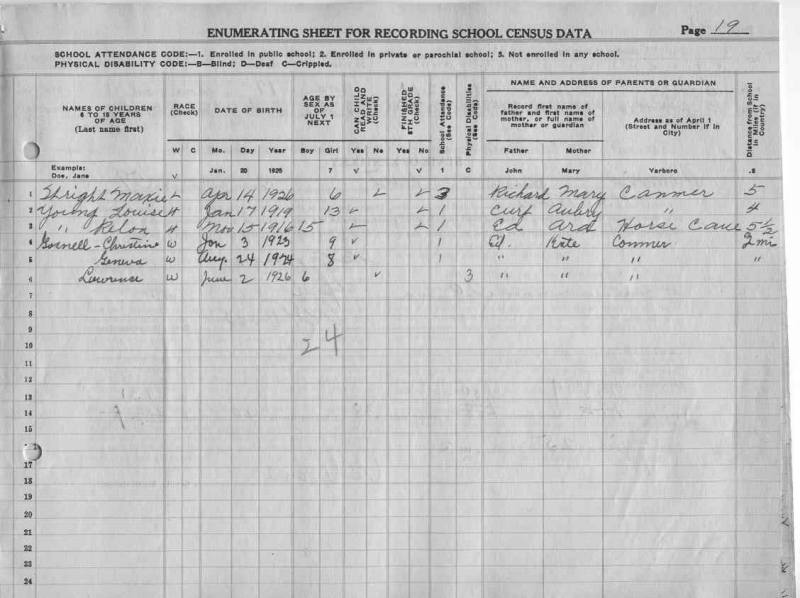 ENUMERATING SHEET FOR RECORDING SCHOOL CENSUS DATA Page 19
SCHOOL ATTENDANCE CODE:—1. Enrolled in public school; 2. Enrolled in private or parochial school; 3. Not enrolled in any school.
PHYSICAL DISABILITY CODE:—B—Blind; D—Deaf C—Crippled.
NAMES OF CHILDREN 6 TO 18 YEARS OF AGE (Last name first)
RACE (Check)
DATE OF BIRTH
AGE BY SEX AS OF JULY 1 NEXT
CAN CHILD READ AND WRITE (Check)
FINISHED 8TH GRADE (Check)
School Attendance (See Code)
Physical Disabilities (See Code)
NAME AND ADDRESS OF PARENTS OR GUARDIAN
Record first name of father and first name of mother, or full name of mother or guardian
Address as of April 1 (Street and Number if in City)
Distance from School in Miles (if in Country)
W C Mo. Day Year Boy Girl Yes No Yes No Father Mother
Example: Doe, Jane V Jan. 20 1925 7 V V 1 C John Mary Yarboro .8
1 Maxie Apr 14 1926 6 3 Richard Mary Canmer 5
2 Young Louise Jan 17 1919 13 1 Curt Aubry " 4
3 " Nov 15 1916 15 1 Ed Horse Cave 5½
4 Christine W Jan 3 1923 9 1 Ed. Kate Conmer 2 mi
5 Geneva W Aug. 24 1924 8 1 " " " "
6 Lawrence W June 2 1926 6 3 " " "
7
8
9
10 24
11
12
13
14
15
17
18
19
20
21
22
23
24